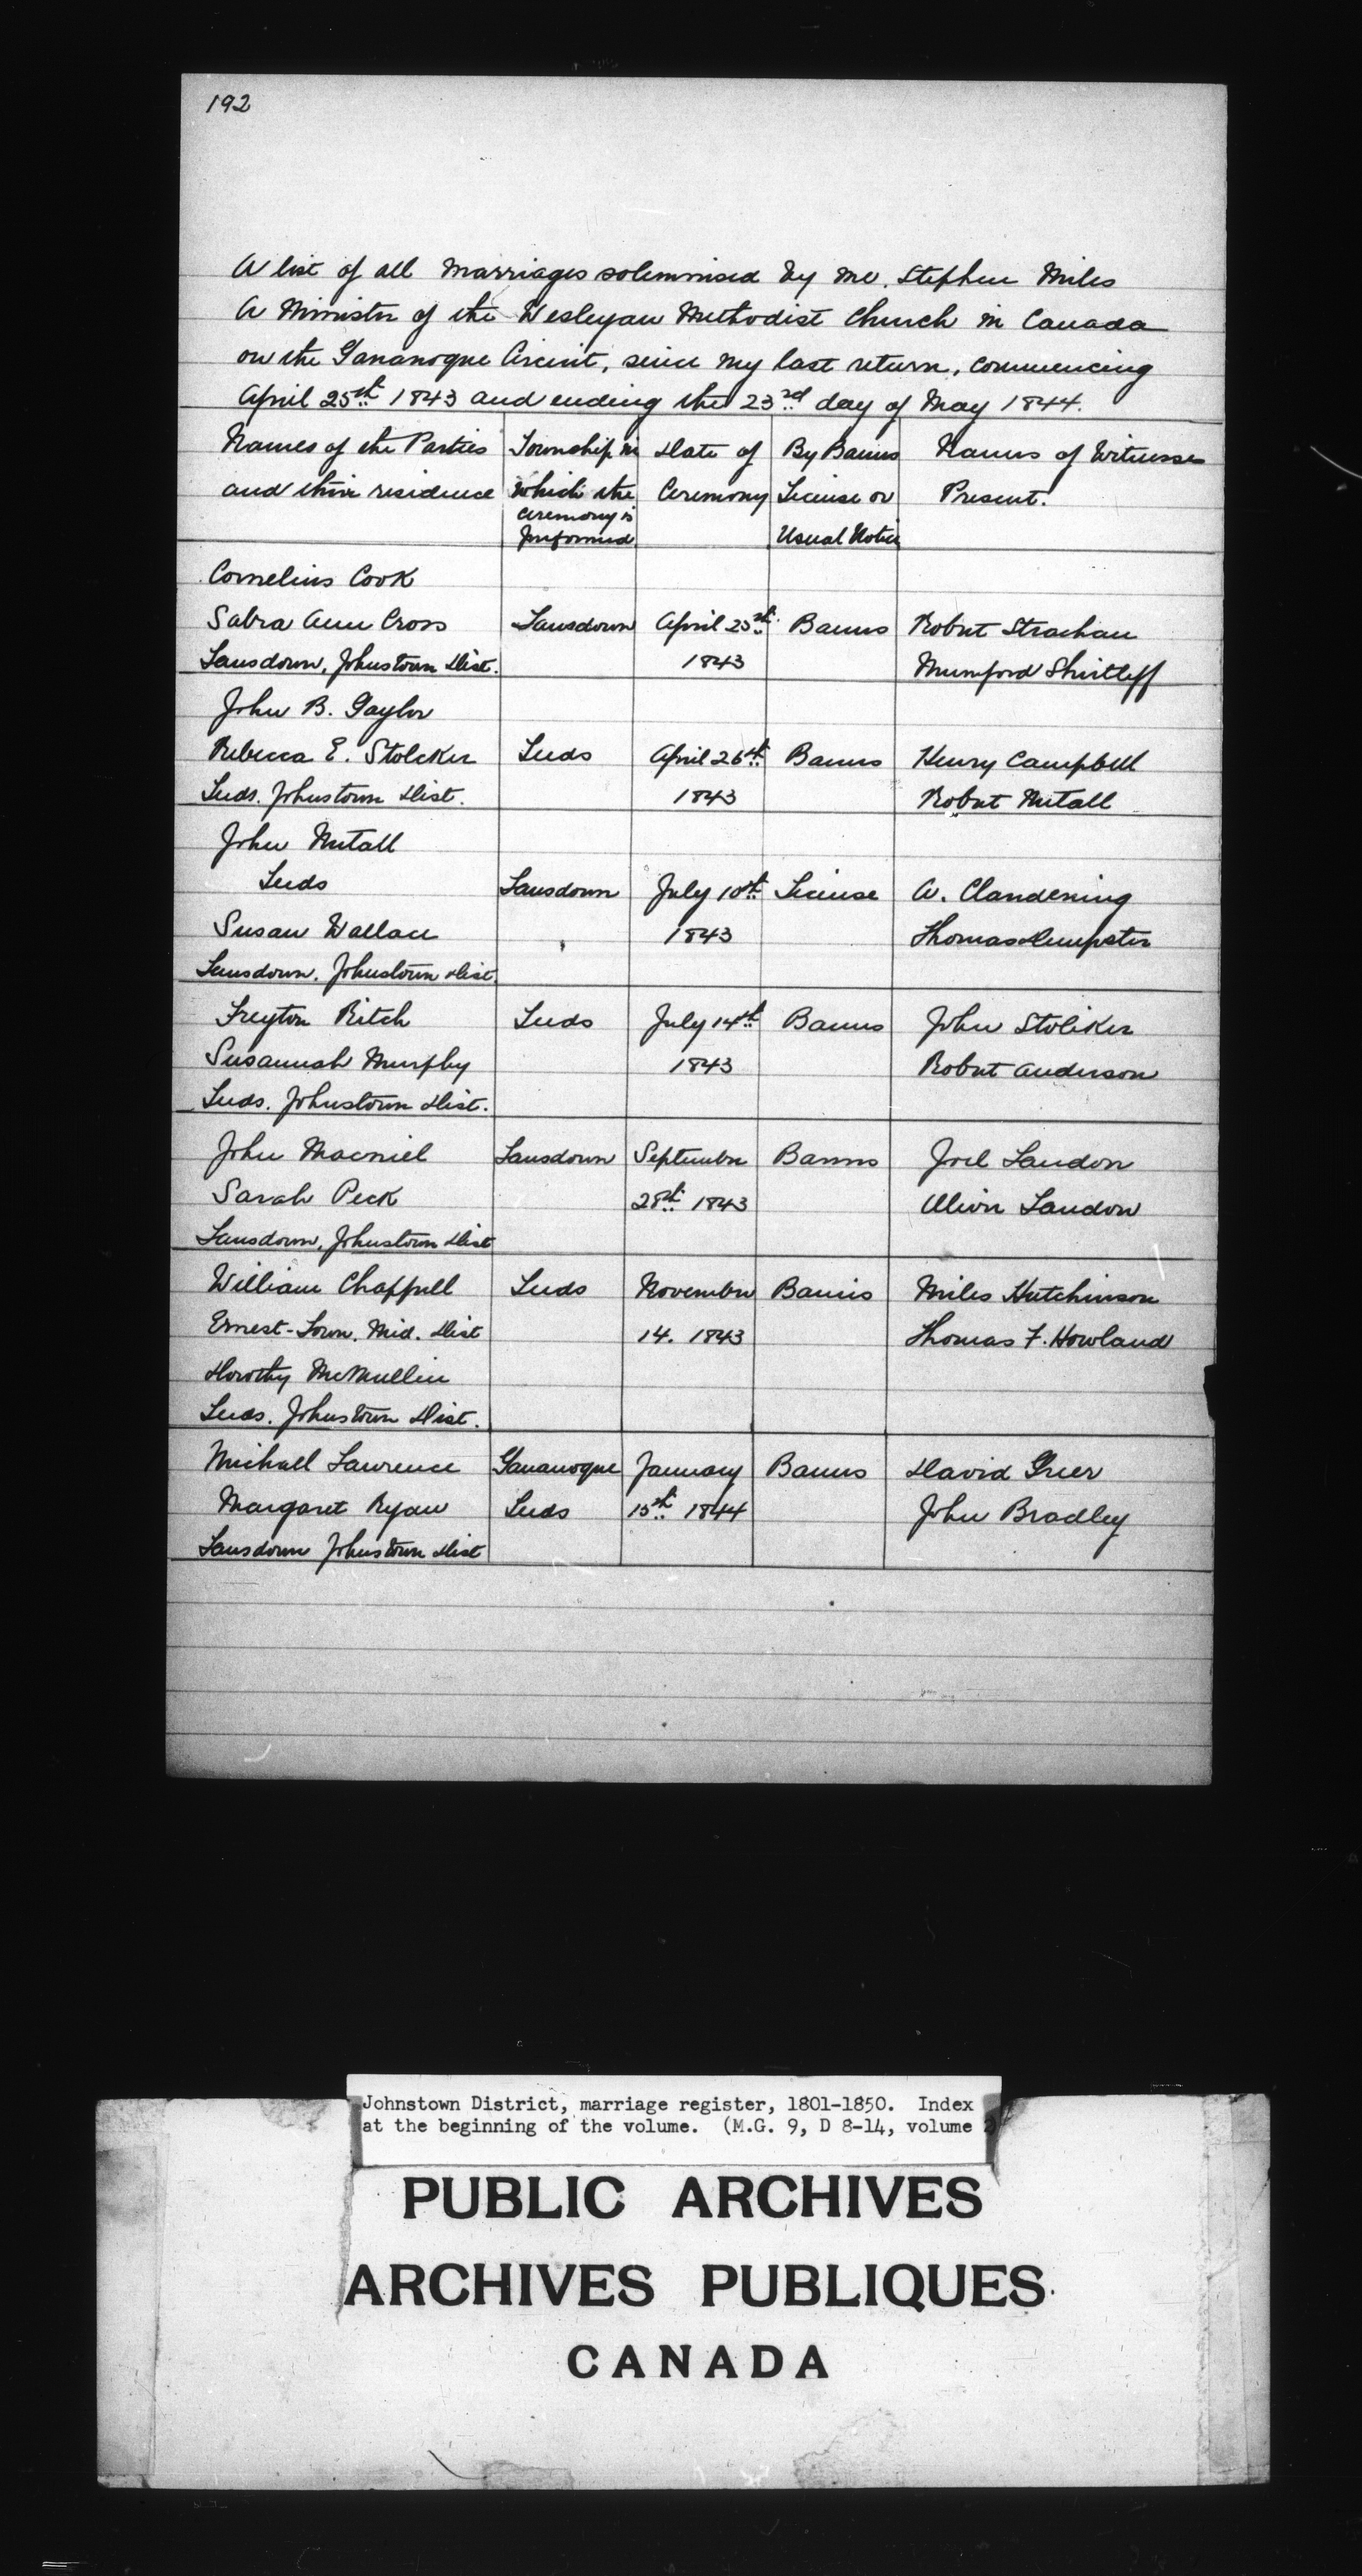 192
A list of all Marriages solemnised by me, Stephen Miles
A Minister of the Wesleyan Methodist Church in Canada
on the Gananoque Circuit, since my last return, commencing
April 25th 1843 and ending the 23rd day of May 1844.
Names of the Parties Township in Date of By Banns Names of Witnesses
and their residence which the Ceremony License or Present.
ceremony is
performed Usual Notice
Cornelius Cook
Sabra Ann Cross Lansdown April 25th Banns Robert Strachan
Lansdown, Johnstown Dist. 1843 Mumford Shirtleff
John B. Gaylor
Rebecca E. Stolcker Leeds April 26th Banns Henry Campbell
Leeds. Johnstown Dist. 1843 Robert Nutall
John Nutall
Leeds Lansdown July 10th License A. Clandening
Susan Wallace 1843 Thomas Dempster
Lansdown. Johnstown Dist.
Ritch Leeds July 14th Banns John Stoliker
Susannah Murphy 1843 Robert Anderson
Leeds. Johnstown Dist.
John Macniel Lansdown September Banns Joel Landon
Sarah Peck 28th 1843 Landon
Lansdown, Johnstown Dist
William Chappell Leeds November Banns Miles Hutchinson
Ernest-Town. Mid. Dist 14. 1843 Thomas F. Howland
Dorothy McMullin
Leeds. Johnstown Dist.
Michall Lawrence Gananoque January Banns David Greer
Margaret Ryan Leeds 15th 1844 John Bradley
Lansdown Johnstown Dist
Johnstown District, marriage register, 1801-1850. Index
at the beginning of the volume. (M.G. 9, D 8-14, volume
PUBLIC ARCHIVES
ARCHIVES PUBLIQUES
CANADA